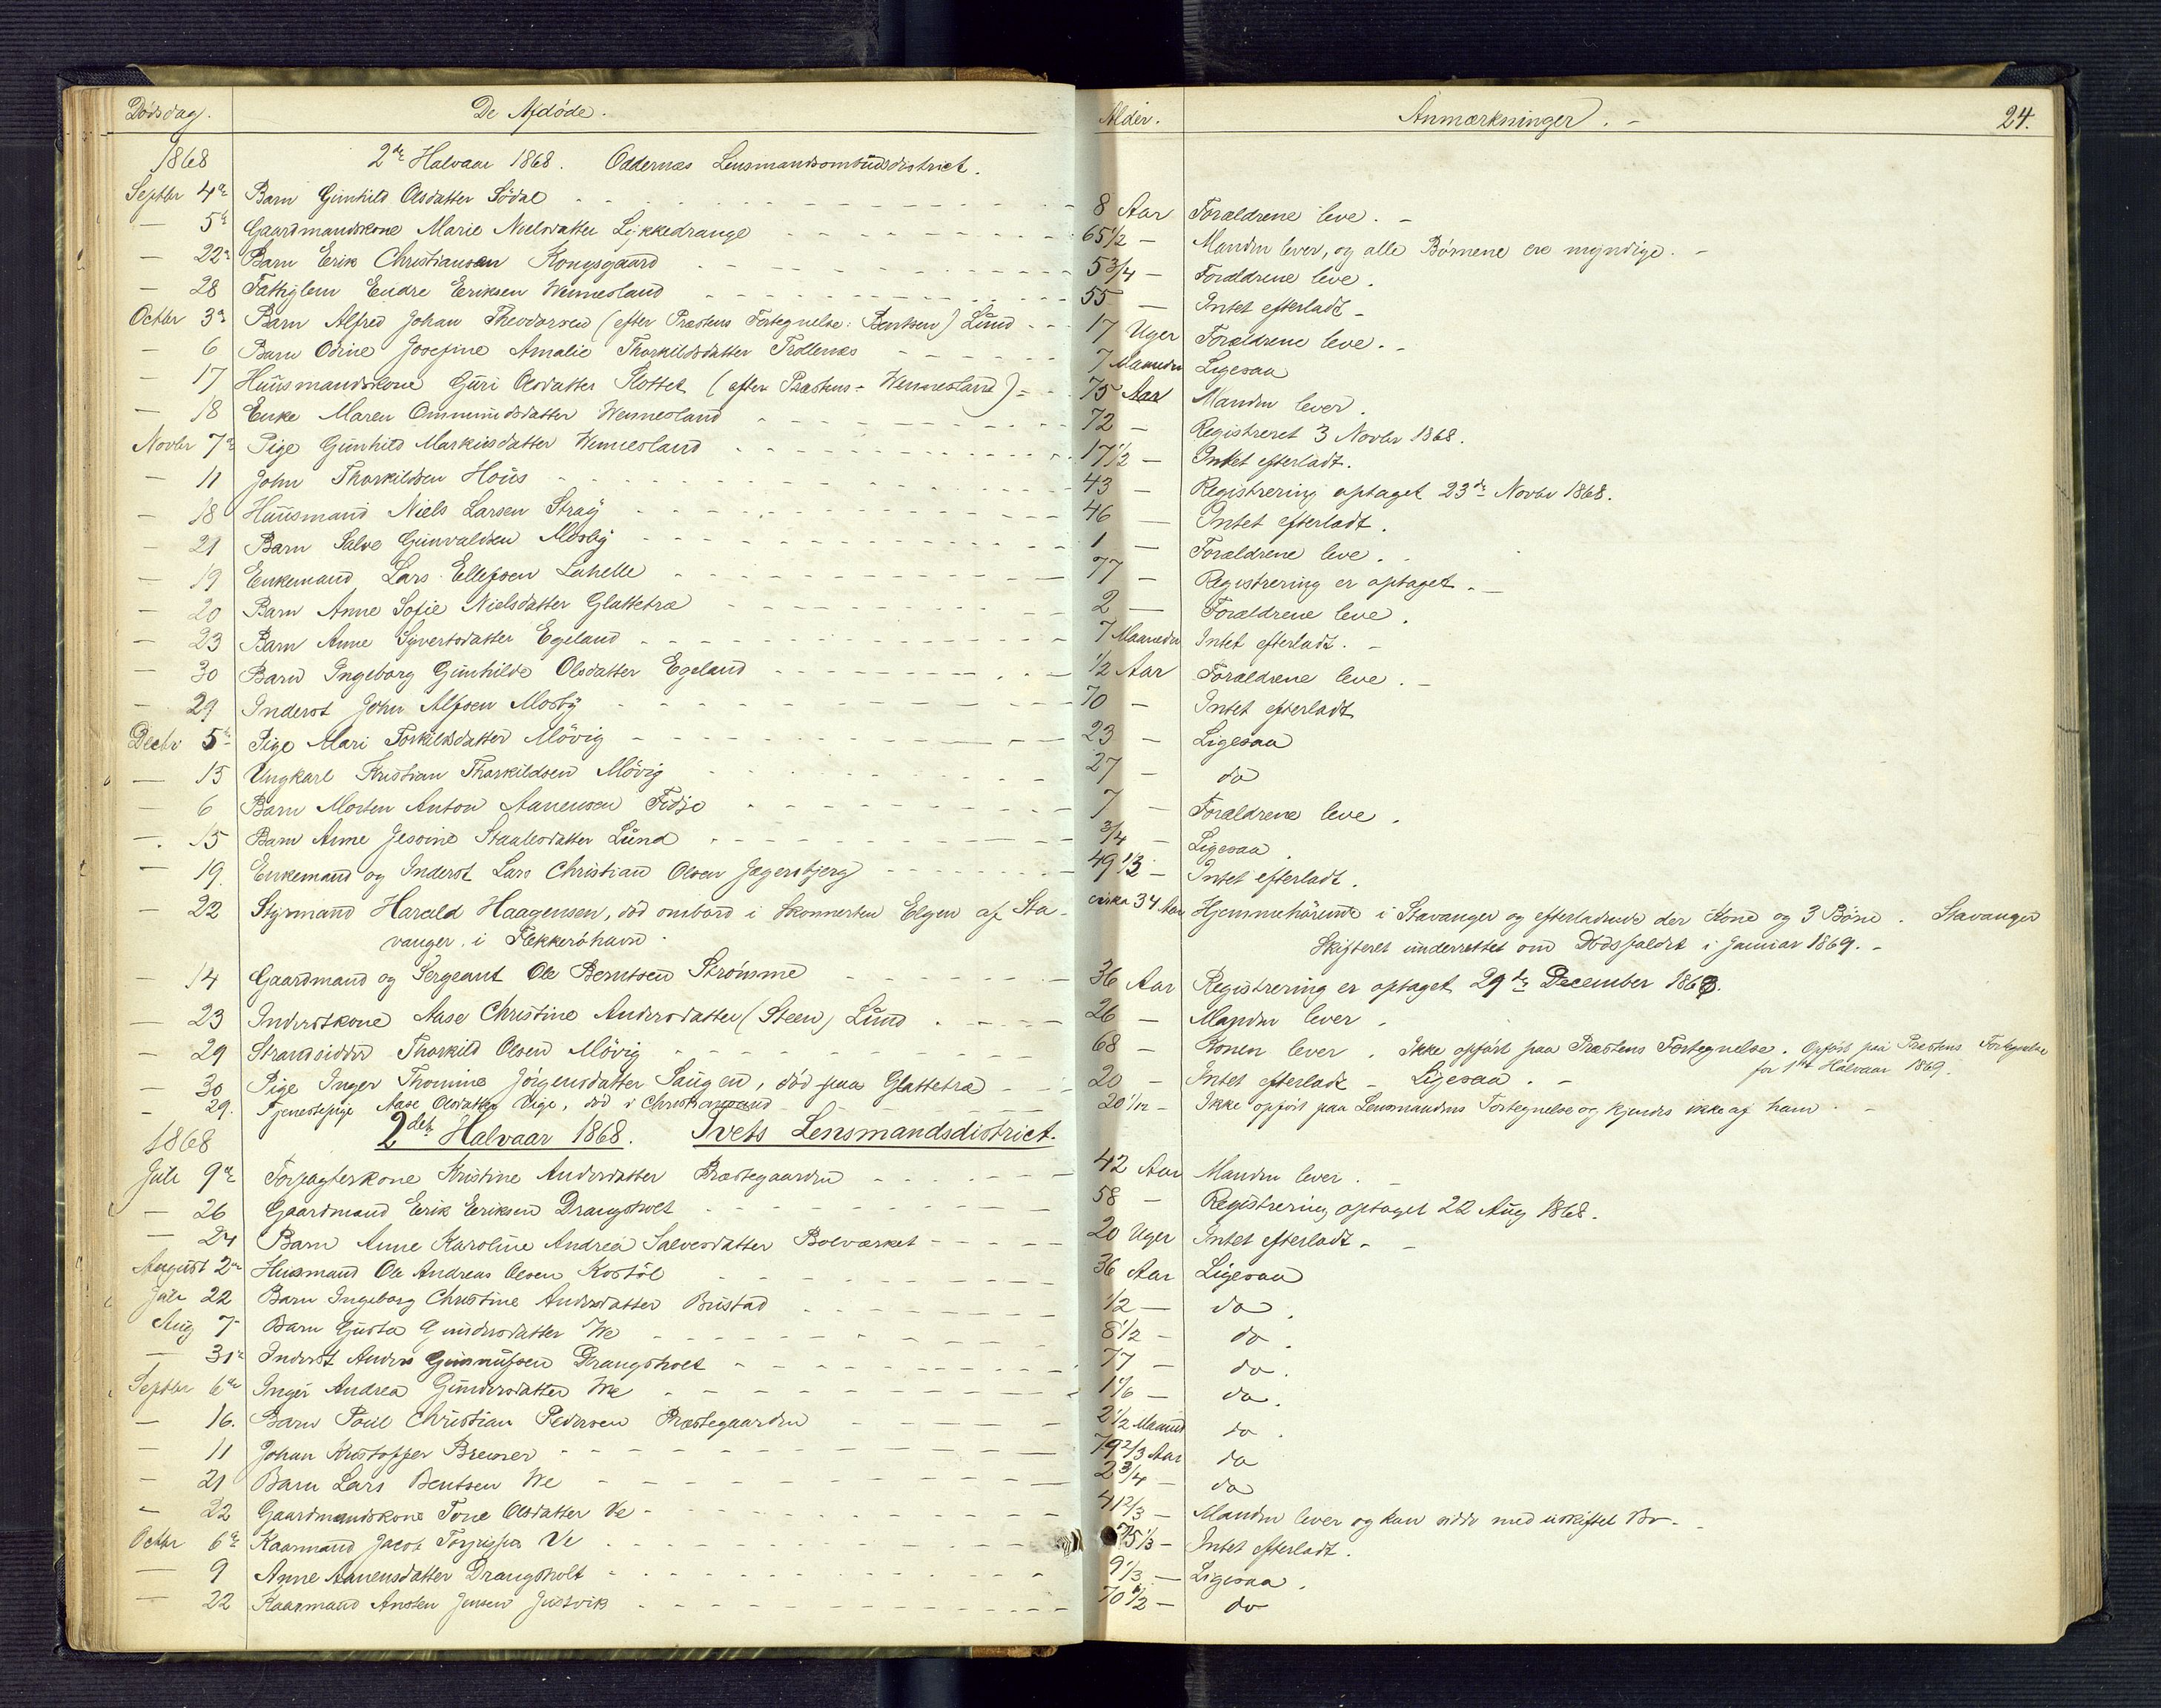 Dødsdag. De Afdøde. Alder. Anmærkninger. - 24.
1868 2det Halvaar 1868. Oddernes Lensmandsombudsdistrict.
Septbr 4de Barn Gunhild Olsdatter Södal 8 Aar Forældrene leve. -
— 5te Gaardmandskone Marie Nielsdatter Lykkedrange 65 1/2 — Manden lever, og alle Börnene ere myndige. -
— 22de Barn Erik Christiansen Kongsgaard 5 3/4 — Forældrene leve.
— 28 Fattiglem Endre Eriksen Wennesland 55 — Intet efterladt -
Octbr 3de Barn Alfred Johan Theodorsen (efter Præstens Fortegnelse: Bentsen) Lund 17 Uger Forældrene leve. -
— 6 Barn Odine Josefine Amalie Thorkildsdatter Trollenes 7 Maaneder Ligesaa
— 17 Huusmandskone Guri Olsdatter Slottet (efter Præstens - Wennesland) 75 Aar Manden lever.
— 18 Enke Maren Ommundsdatter Wennesland 72 — Registreret 3 Novbr 1868.
Novbr 7de Pige Gunhild Markusdatter Wennesland 17 1/2 — Intet efterladt.
— 11 John Thorkildsen Hous 43 — Registrering optaget 23de Novbr 1868.
— 18 Huusmand Niels Larsen Stray 46 — Intet efterladt.
— 21 Barn Salve Gunvaldsen Mosby 1 — Forældrene leve.
— 19 Enkemand Lars Ellefsen Lahelle 77 — Registrering er optaget. -
— 20 Barn Anne Sofie Nielsdatter Glattetræ 2 — Forældrene leve.
— 23 Barn Anne Syvertsdatter Egeland 7 Maaneder Intet efterladt. -
— 30 Barn Ingeborg Gunhilde Olsdatter Egeland 1/2 Aar Forældrene leve. -
— 29 Inderst John Alfsen Mosby 70 — Intet efterladt
Decbr 5te Pige Mari Torkildsdatter Mövig 23 — Ligesaa
— 15 Ungkarl Kristian Thorkildsen Mövig 27 — do
— 6 Barn Morten Anton Aanensen Fidje 7 — Forældrene leve.
— 15 Barn Anne Jesoine Staalesdatter Lund 3/4 — Ligesaa
— 19. Enkemand og Inderst Lars Christian Olsen Jegersbjerg 49 1/3 — Intet efterladt.
— 22 Styrmand Harald Haagensen, död ombord i Skonnerten Elgen af Sta- cirka 34 Aar Hjemmehörende i Stavanger og efterladende der Kone og 3 Börn. Stavanger
vanger i Flekkeröhavn. Skifteret underrettet om Dödsfaldet i Januar 1869. -
— 14 Gaardmand og Sergeant Ole Berntsen Strömme 36 Aar Registrering er optaget 29de December 1868.
— 23 Inderstkone Aase Christine Andersdatter (Steen) Lund 26 — Manden lever.
— 29 Strandsidder Thorkild Olsen Mövig 68 — Konen lever. Ikke opfört paa Præstens Fortegnelse. Opfört paa Præstens Fortegnelse
for 1ste Halvaar 1869.
— 30 Pige Inger Thomine Jörgensdatter Saugen, död paa Glattetræ 20 — Intet efterladt - Ligesaa. -
— 29. Tjenestepige Aase Olsdatter Vige, död i Christiansand 20 1/12 — Ikke opfört paa Lensmandens Fortegnelse og kjendes ikke af ham. -
1868 2det Halvaar 1868. Tvets Lensmandsdistrict.
Juli 9de Forpagterkone Kristine Andersdatter Præstegaarden 42 Aar Manden lever. -
— 26 Gaardmand Erik Eriksen Drangsholt 58 — Registrering optaget 22 Aug 1868.
— 24 Barn Anne Karoline Andrea Salvesdatter Bolværket 20 Uger Intet efterladt -
August 2den Husmand Ole Andreas Olsen Kostöl 36 Aar Ligesaa
Juli 22 Barn Ingeborg Christine Andersdatter Bustad 1/2 — do.
Aug 7 Barn Gusta Gundersdatter We 8 1/2 — do.
— 31te Inderst Anders Gunnufsen Drangsholt 77 — do.
Septbr 6te Inger Andrea Gundersdatter We 1 1/6 — do.
— 16. Barn Poul Christian Pedersen Præstegaarden 2 1/2 Maaned do.
— 11 Johan Kristoffer Bremer 79 2/3 Aar do
— 21 Barn Lars Bentsen We 2 3/4 — do
— 22 Gaardmandskone Tone Olsdatter Ve 41 2/3 — Manden lever og kan sidde med uskiftet Bo. -
Octbr 6te Kaarmand Jacob Ve 75 1/3 — Intet efterladt.
— 9 Anne Aanensdatter Drangsholt 9 1/3 — Ligesaa.
— 22 Kaarmand Ansten Jensen Justvik 70 1/2 — do